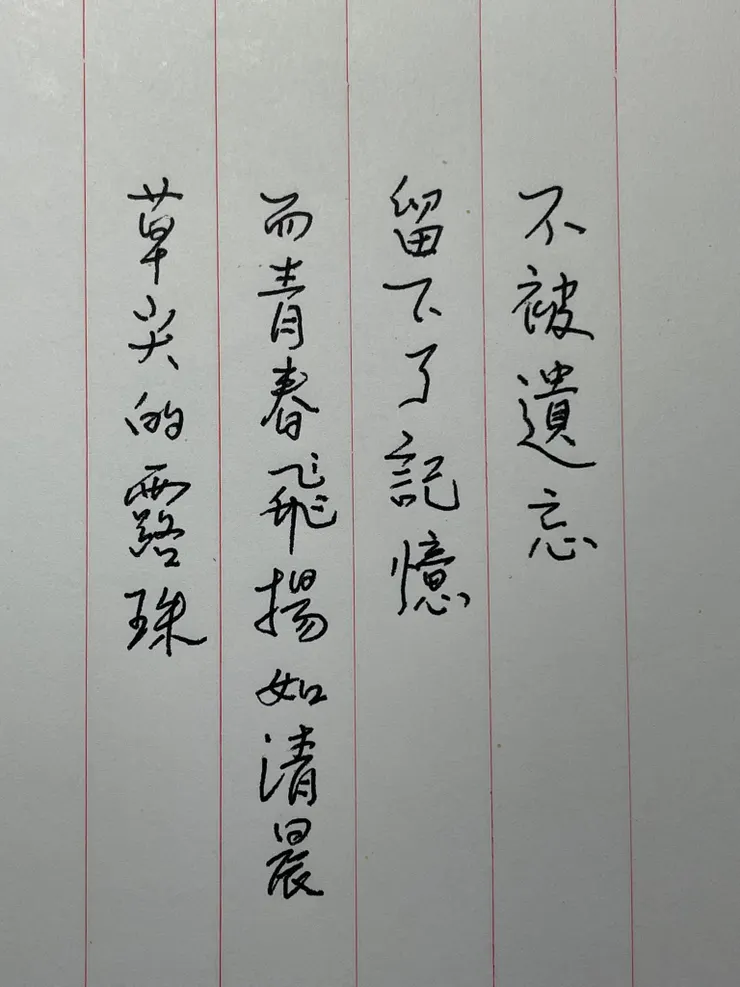 不被遺忘
留下了記憶
而青春飛揚如清晨
草尖的露珠